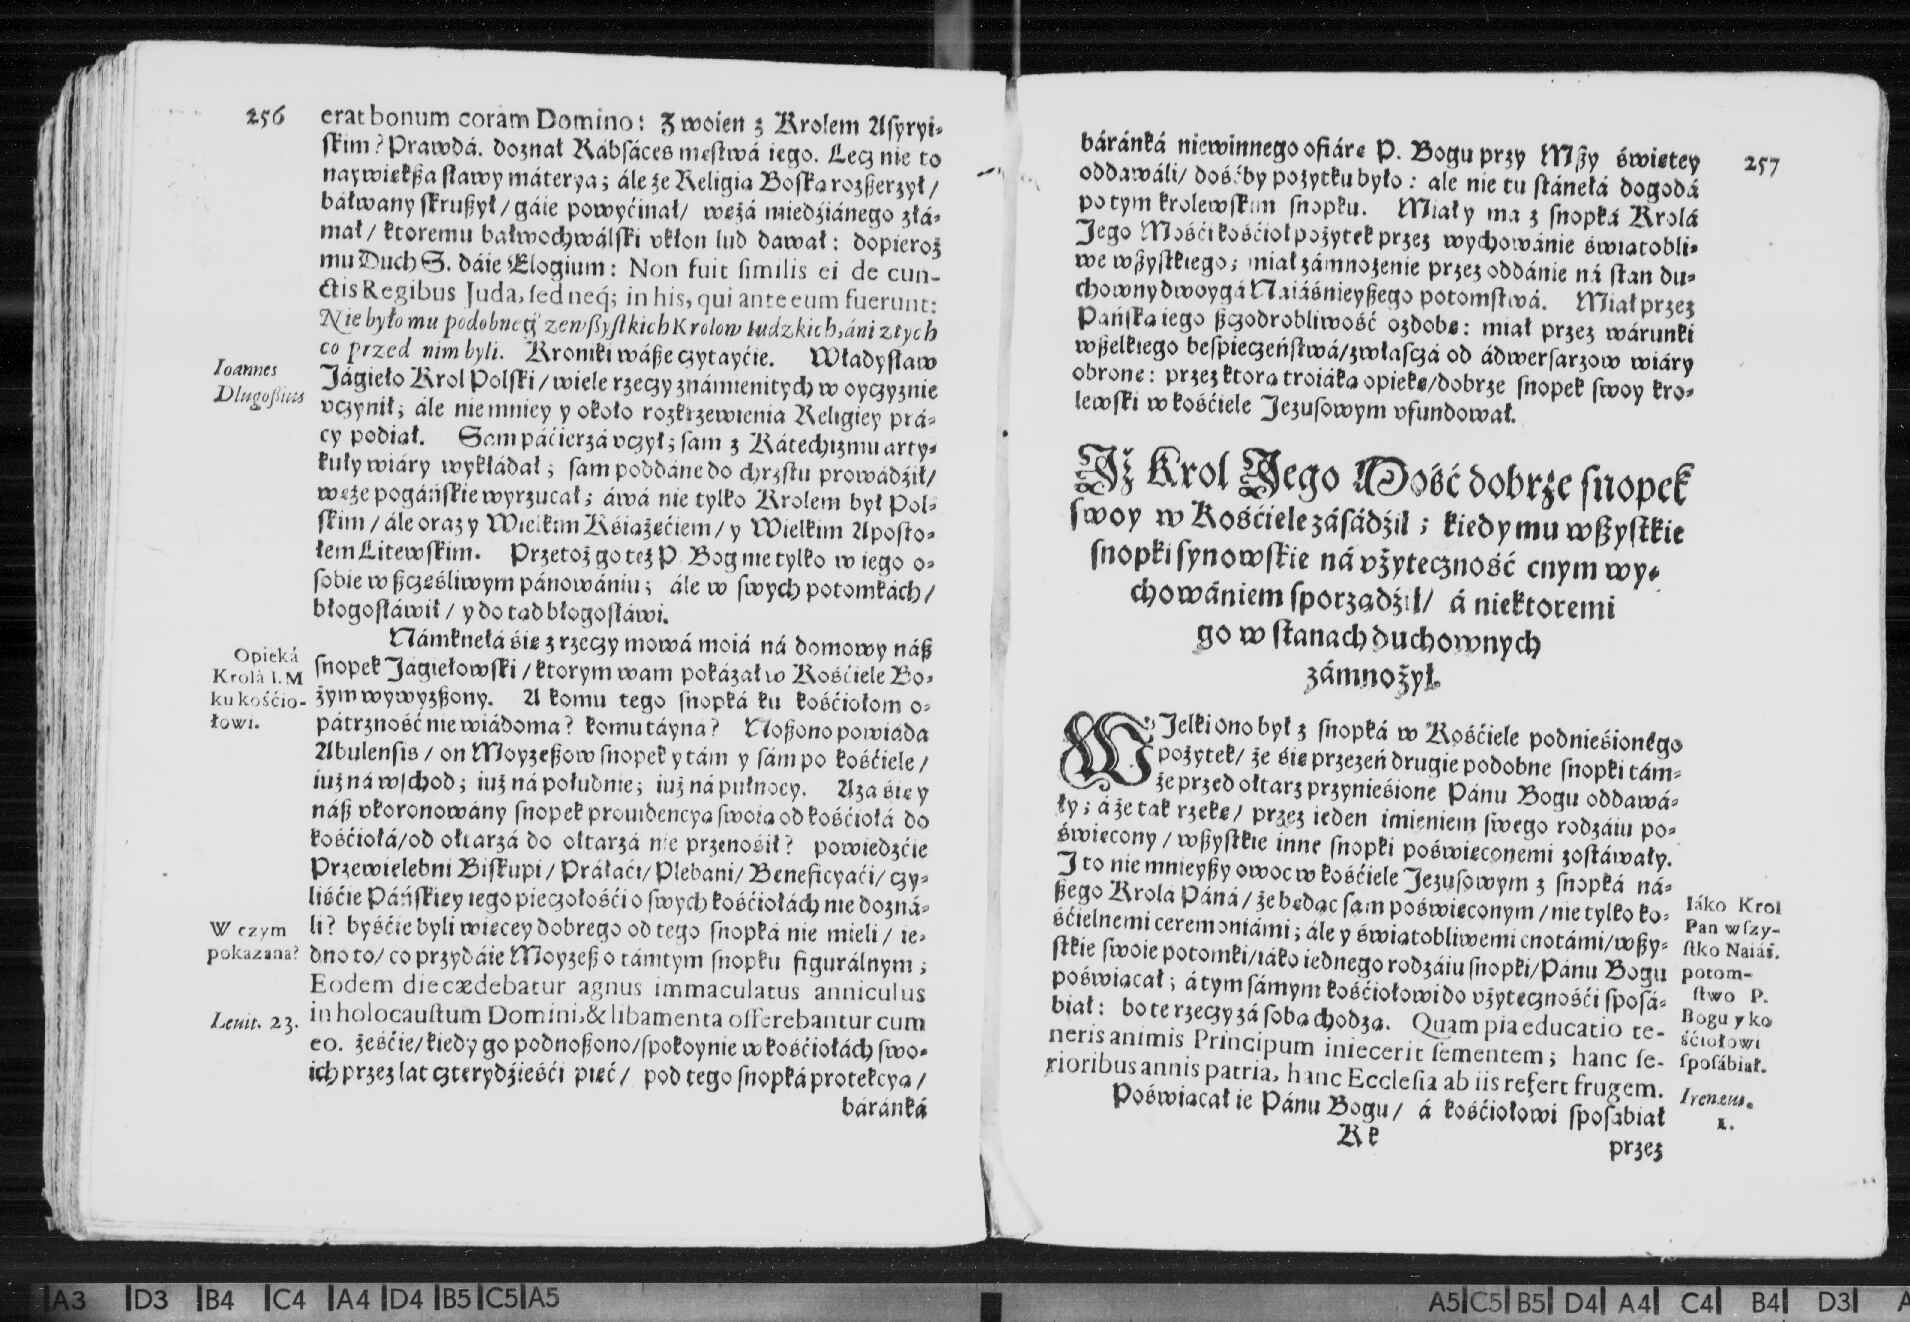 256
erat bonum coram Domino: Z woien z Krolem Asyryi-
skim? Prawdá. doznał Rábsáces męstwá iego. Lecz nie to
naywiększa sławy máterya; ále że Religią Boską rozszerzył/
báłwany skruszył/ gáie powyćinał/ wężá miedźiánego złá-
mał/ ktoremu bałwochwálski vkłon lud dawał: dopieroż
mu Duch S. dáie Elogium: Non fuit similis ei de cun-
ctis Regibus Juda, sed neq́; in his, qui ante eum fuerunt:
Nie było mu podobneg̃ ze wszystkich Krolow Iudzkich, áni z tych
co przed nim byli. Kroniki wásze czytayćie. Władysław
Jágieło Krol Polski/ wiele rzeczy známienitych w oyczyznie
vczynił; ále niemniey y około rozkrzewienia Religiey prá-
cy podiął. Sam páćierzá vczył; sam z Kátechizmu arty-
kuły wiáry wykłádał; sam poddáne do chrzstu prowádźił/
węże pogáńskie wyrzucał; áwá nie tylko Krolem był Pol-
skim/ ále oraz y Wielkim Kśiążęćiem/ y Wielkim Aposto-
łem Litewskim. Przetoż go też P. Bog nie tylko w iego o-
sobie w szczęśliwym pánowániu; ále w swych potomkách/
błogosłáwił/ y do tąd błogosłáwi.
Námknęłá śię z rzeczy mowá moiá ná domowy nász
snopek Jágiełowski/ ktorym wam pokázał w Kośćiele Bo-
żym wywyzszony. A komu tego snopká ku kośćiołom o-
pátrzność nie wiádoma? komu táyna? Noszono powiáda
Abulensis/ on Moyzeszow snopek y tám y sám po kośćiele/
iuż ná wschod; iuż ná południe; iuż ná pułnocy. Aza śię y
nász vkoronowány snopek prouidencyą swoią od kośćiołá do
kośćiołá/ od ołtarzá do ołtarzá nie przenośił? powiedzćie
Przewielebni Biskupi/ Práłaći/ Plebani/ Beneficyaći/ czy-
liśćie Páńskiey iego pieczołośći o swych kośćiołách nie dozná-
li? byśćie byli więcey dobrego od tego snopká nie mieli/ ie-
dno to/ co przydáie Moyzesz o támtym snopku figurálnym;
Eodem die cædebatur agnus immaculatus anniculus
in holocaustum Domini, & libamenta offerebantur cum
eo. żeśćie/ kiedy go podnoszono/ spokoynie w kośćiołách swo-
ich przez lat czterydźieśći pięć/ pod tego snopká protekcyą/
báránká
Ioannes
Dlugoszius
Opieká
Krolá I.M
ku kośćio-
łowi.
W czym
pokazana?
Leuit. 23.
257
báránká niewinnego ofiárę P. Bogu przy Mszy świętey
oddawáli/ dość by pożytku było: ale nie tu stánęłá dogodá
po tym krolewskim snopku. Miał y ma z snopká Krolá
Jego Mośći kośćioł pożytek przez wychowánie świątobli-
we wszystkiego; miał zámnożenie przez oddánie ná stan du-
chowny dwoygá Naiáśnieyszego potomstwá. Miał przez
Páńską iego szczodrobliwość ozdobę: miał przez wárunki
wszelkiego bespieczeństwá/ zwłasczá od ádwersarzow wiáry
obronę: przez ktorą troiáką opiekę/ dobrze snopek swoy kro-
lewski w kośćiele Jezusowym vfundował.
Iż Krol Jego Mość dobrze snopek
swoy w Kośćiele zásádźił; kiedy mu wszystkie
snopki synowskie ná vżyteczność cnym wy-
chowániem sporządźił/ á niektoremi
go w stanach duchownych
zámnożył.
WJelki ono był z snopká w Kośćiele podnieśionégo
pożytek/ że śię przezeń drugie podobne snopki tám-
że przed ołtarz przynieśione Pánu Bogu oddawá-
ły; á że tak rzekę/ przez ieden imieniem swego rodzáiu po-
święcony/ wszystkie inne snopki poświęconemi zostáwały.
I to nie mnieyszy owoc w kośćiele Jezusowym z snopká ná-
szego Krolá Páná/ że będąc sam poświęconym/ nie tylko ko-
śćielnemi ceremoniámi; ále y świątobliwemi cnotámi/ wszy-
stkie swoie potomki/ iáko iednego rodzáiu snopki/ Pánu Bogu
poświącał; á tym sámym kośćiołowi do vżytecznośći sposá-
biał: bo te rzeczy zá sobą chodzą. Quam pia educatio te-
neris animis Principum iniecerit sementem; hanc se-
rioribus annis patria, hanc Ecclesia ab iis refert frugem.
Poświącał ie Pánu Bogu/ á kośćiołowi sposabiał
Kk
przez
Iáko Krol
Pan wszy-
stko Naiáś.
potom-
stwo P.
Bogu y ko
śćiołowi
sposábiał.
Irenæus.
1.
A3 D3 B4 C4 A4 D4 B5 C5 A5
A5 C5 B5 D4 A4 C4 B4 D3 A